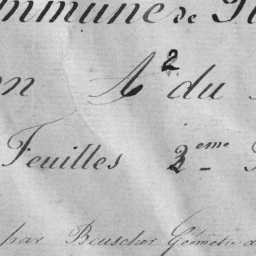 ommune de
on A 2 du
Feuilles 2eme
par Beuscher Géomètre d